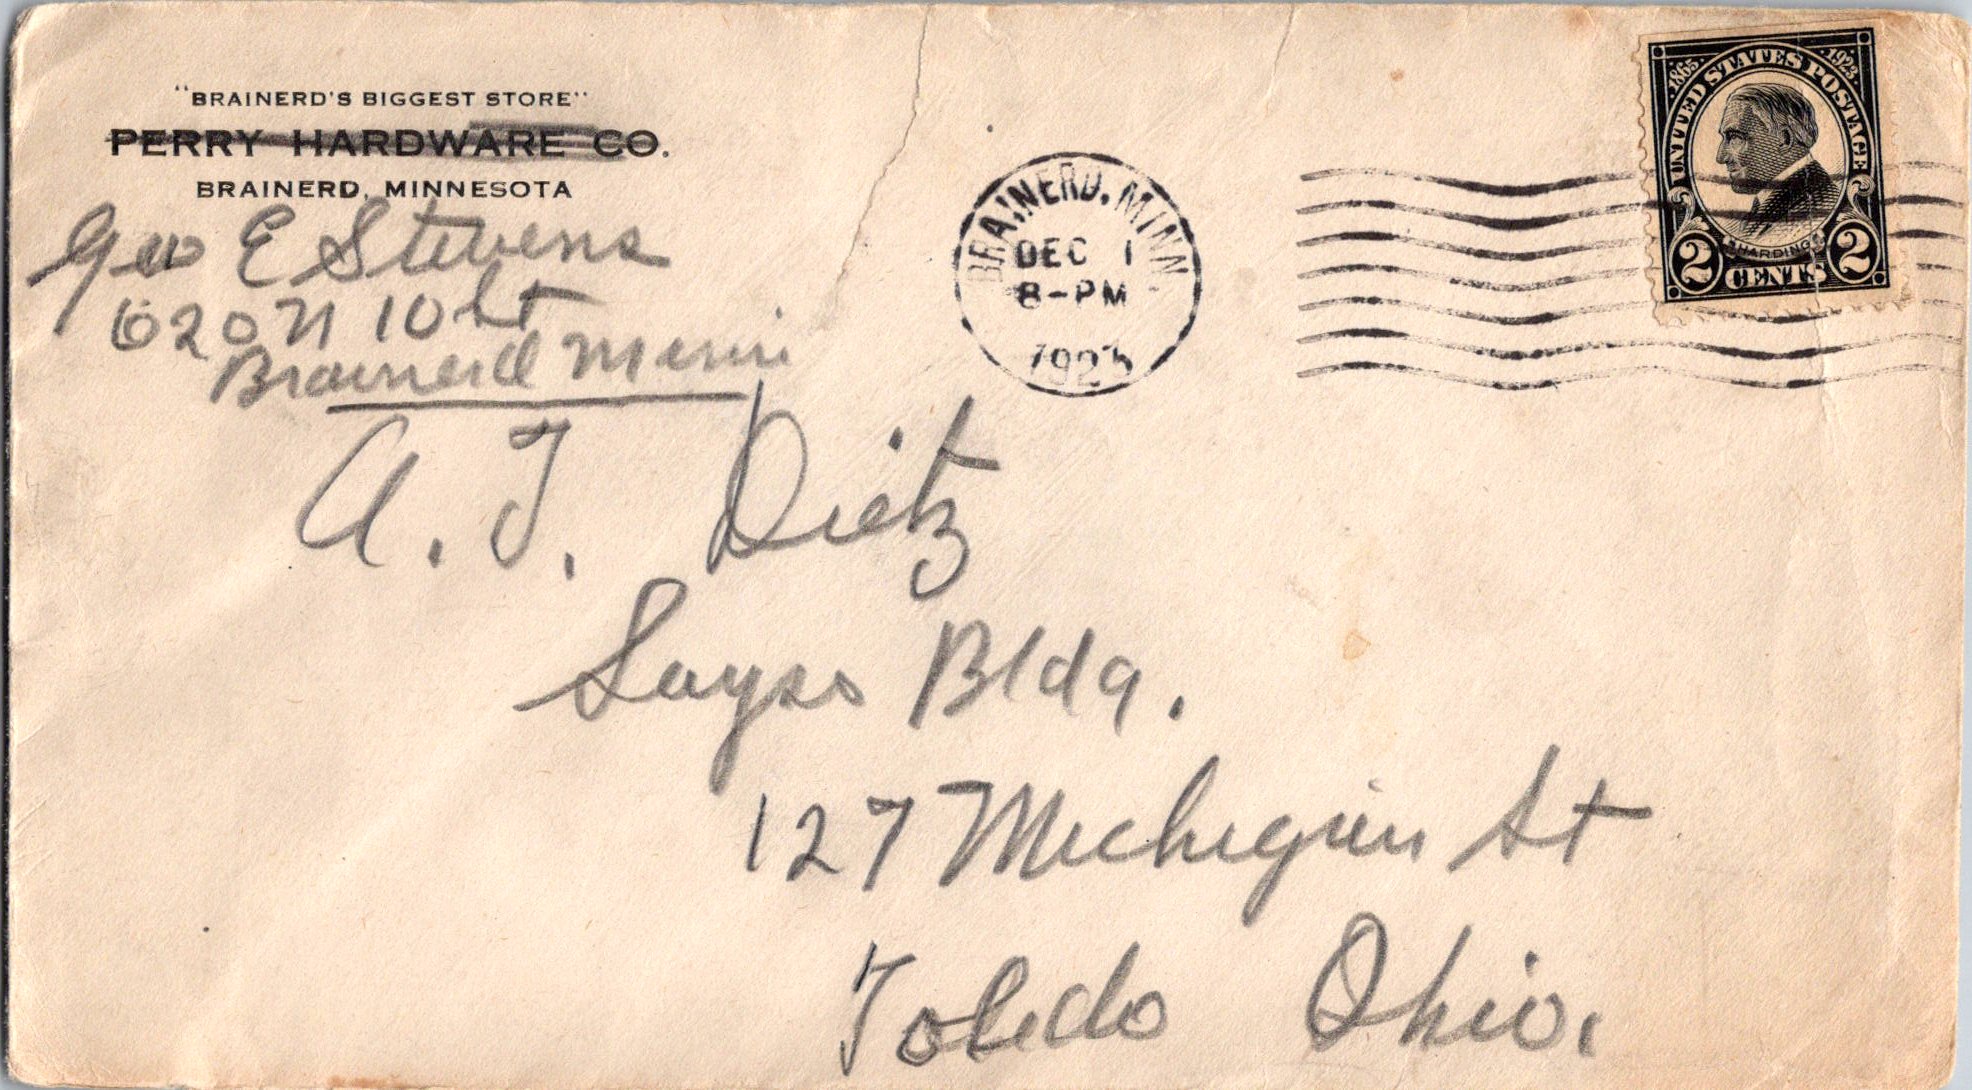 "BRAINERD'S BIGGEST STORE"
PERRY HARDWARE CO.
BRAINERD, MINNESOTA
Geo E Stevens
620 N 10 St
Brainerd Minn
BRAINERD, MINN.
DEC 1
8-PM
1923
1865 1923
UNITED STATES POSTAGE
HARDING
2 CENTS 2
A. J. Dietz
Sayso Bldg.
127 Michigan St
Toledo Ohio.